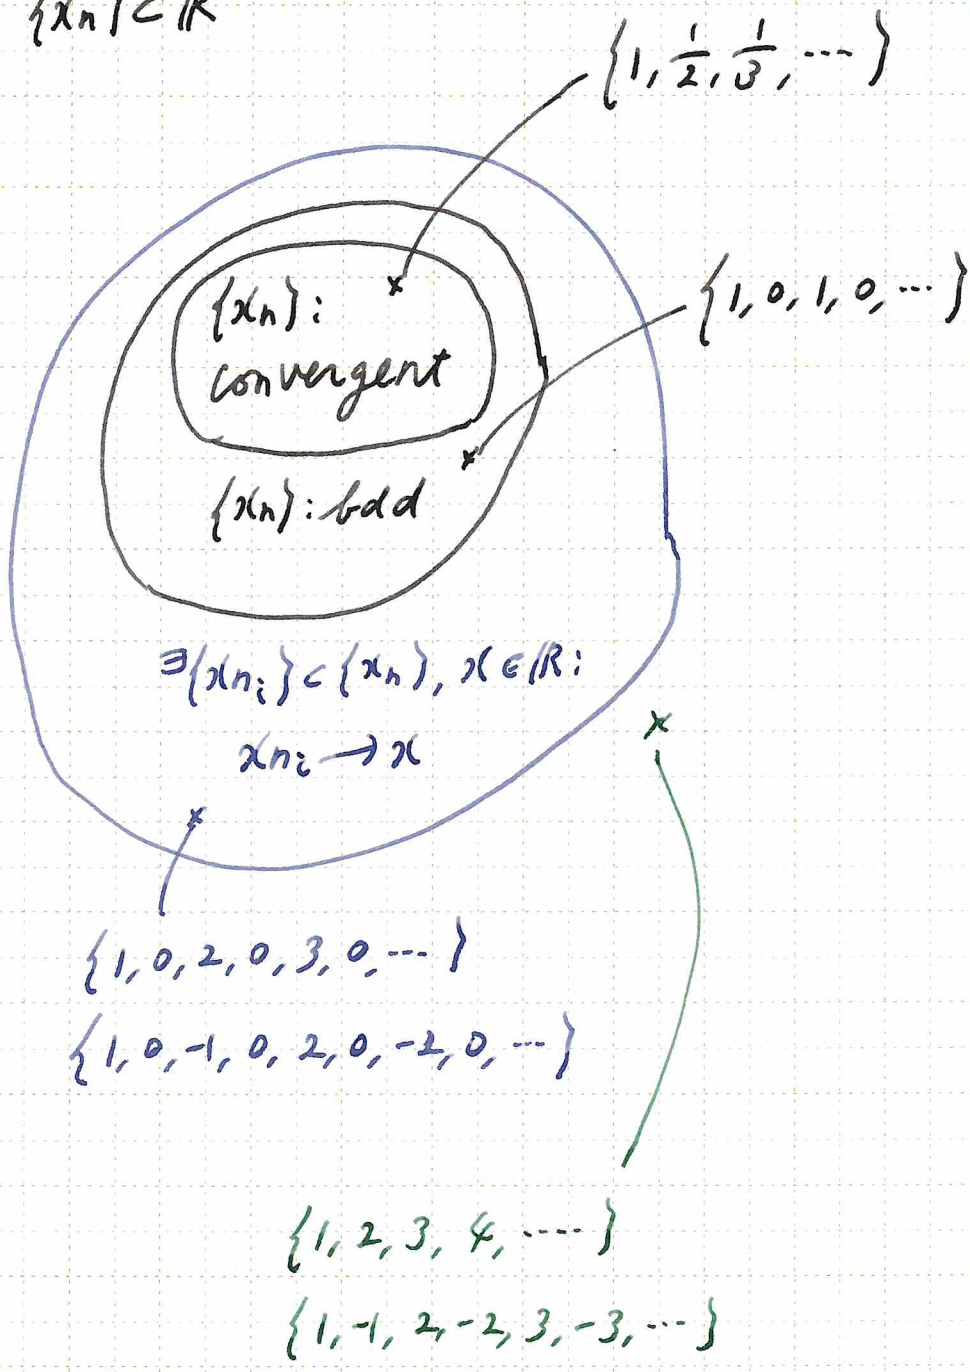 {xn} ⊂ ℝ
{1, 1/2, 1/3, ...}
{xn}:
convergent
{1, 0, 1, 0, ...}
{xn}: bdd
∃{xnᵢ} ⊂ {xn}, x ∈ ℝ:
xnᵢ → x
{1, 0, 2, 0, 3, 0, ...}
{1, 0, -1, 0, 2, 0, -2, 0, ...}
{1, 2, 3, 4, .....}
{1, -1, 2, -2, 3, -3, ...}